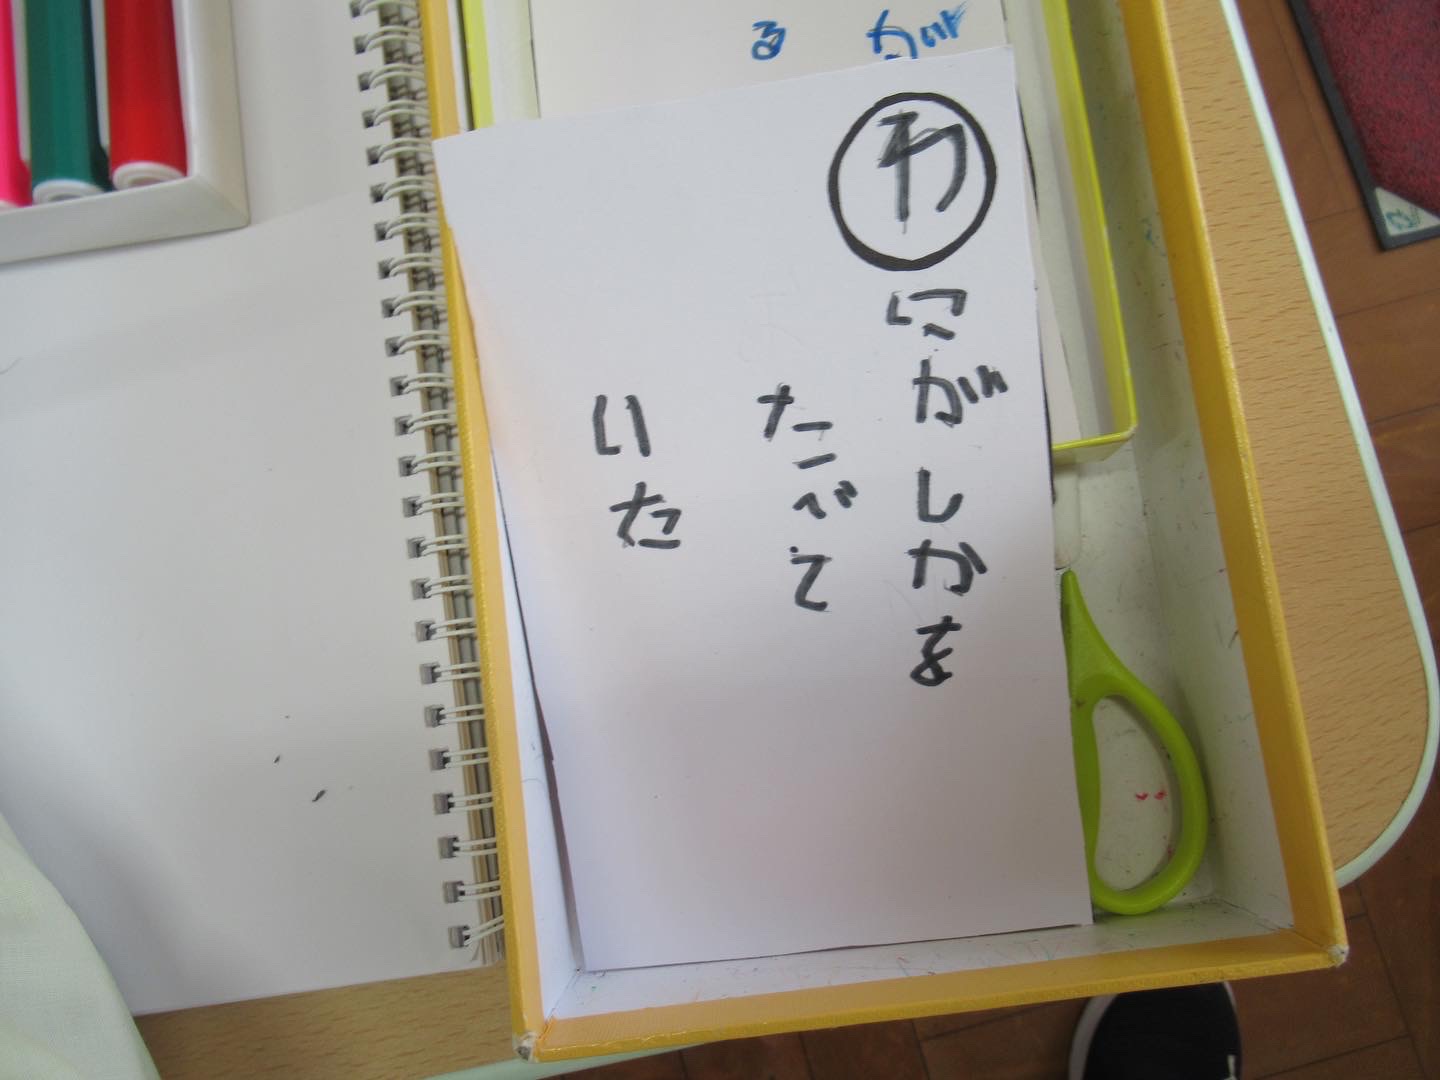 が
る
わにがしかを
たべて
いた